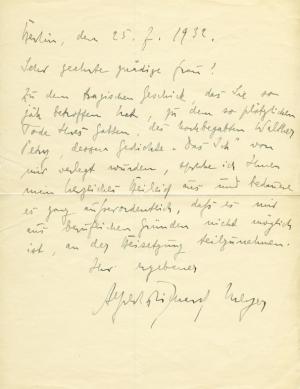 Berlin, den 25. 7. 1932.
Sehr geehrte gnädige Frau!
Zu dem tragischen Geschick, das Sie so
jäh betroffen hat, zu dem so plötzlichen
Tode Ihres Gatten, des hochbegabten Walther
Petry, dessen Gedichte „Das Ich“ von
mir verlegt wurden, spreche ich Ihnen
mein herzliches Beileid aus und bedaure
es ganz außerordentlich, daß es mir
aus beruflichen Gründen nicht möglich
ist, an der Beisetzung teilzunehmen.
Ihr ergebener
Alfred Richard Meyer